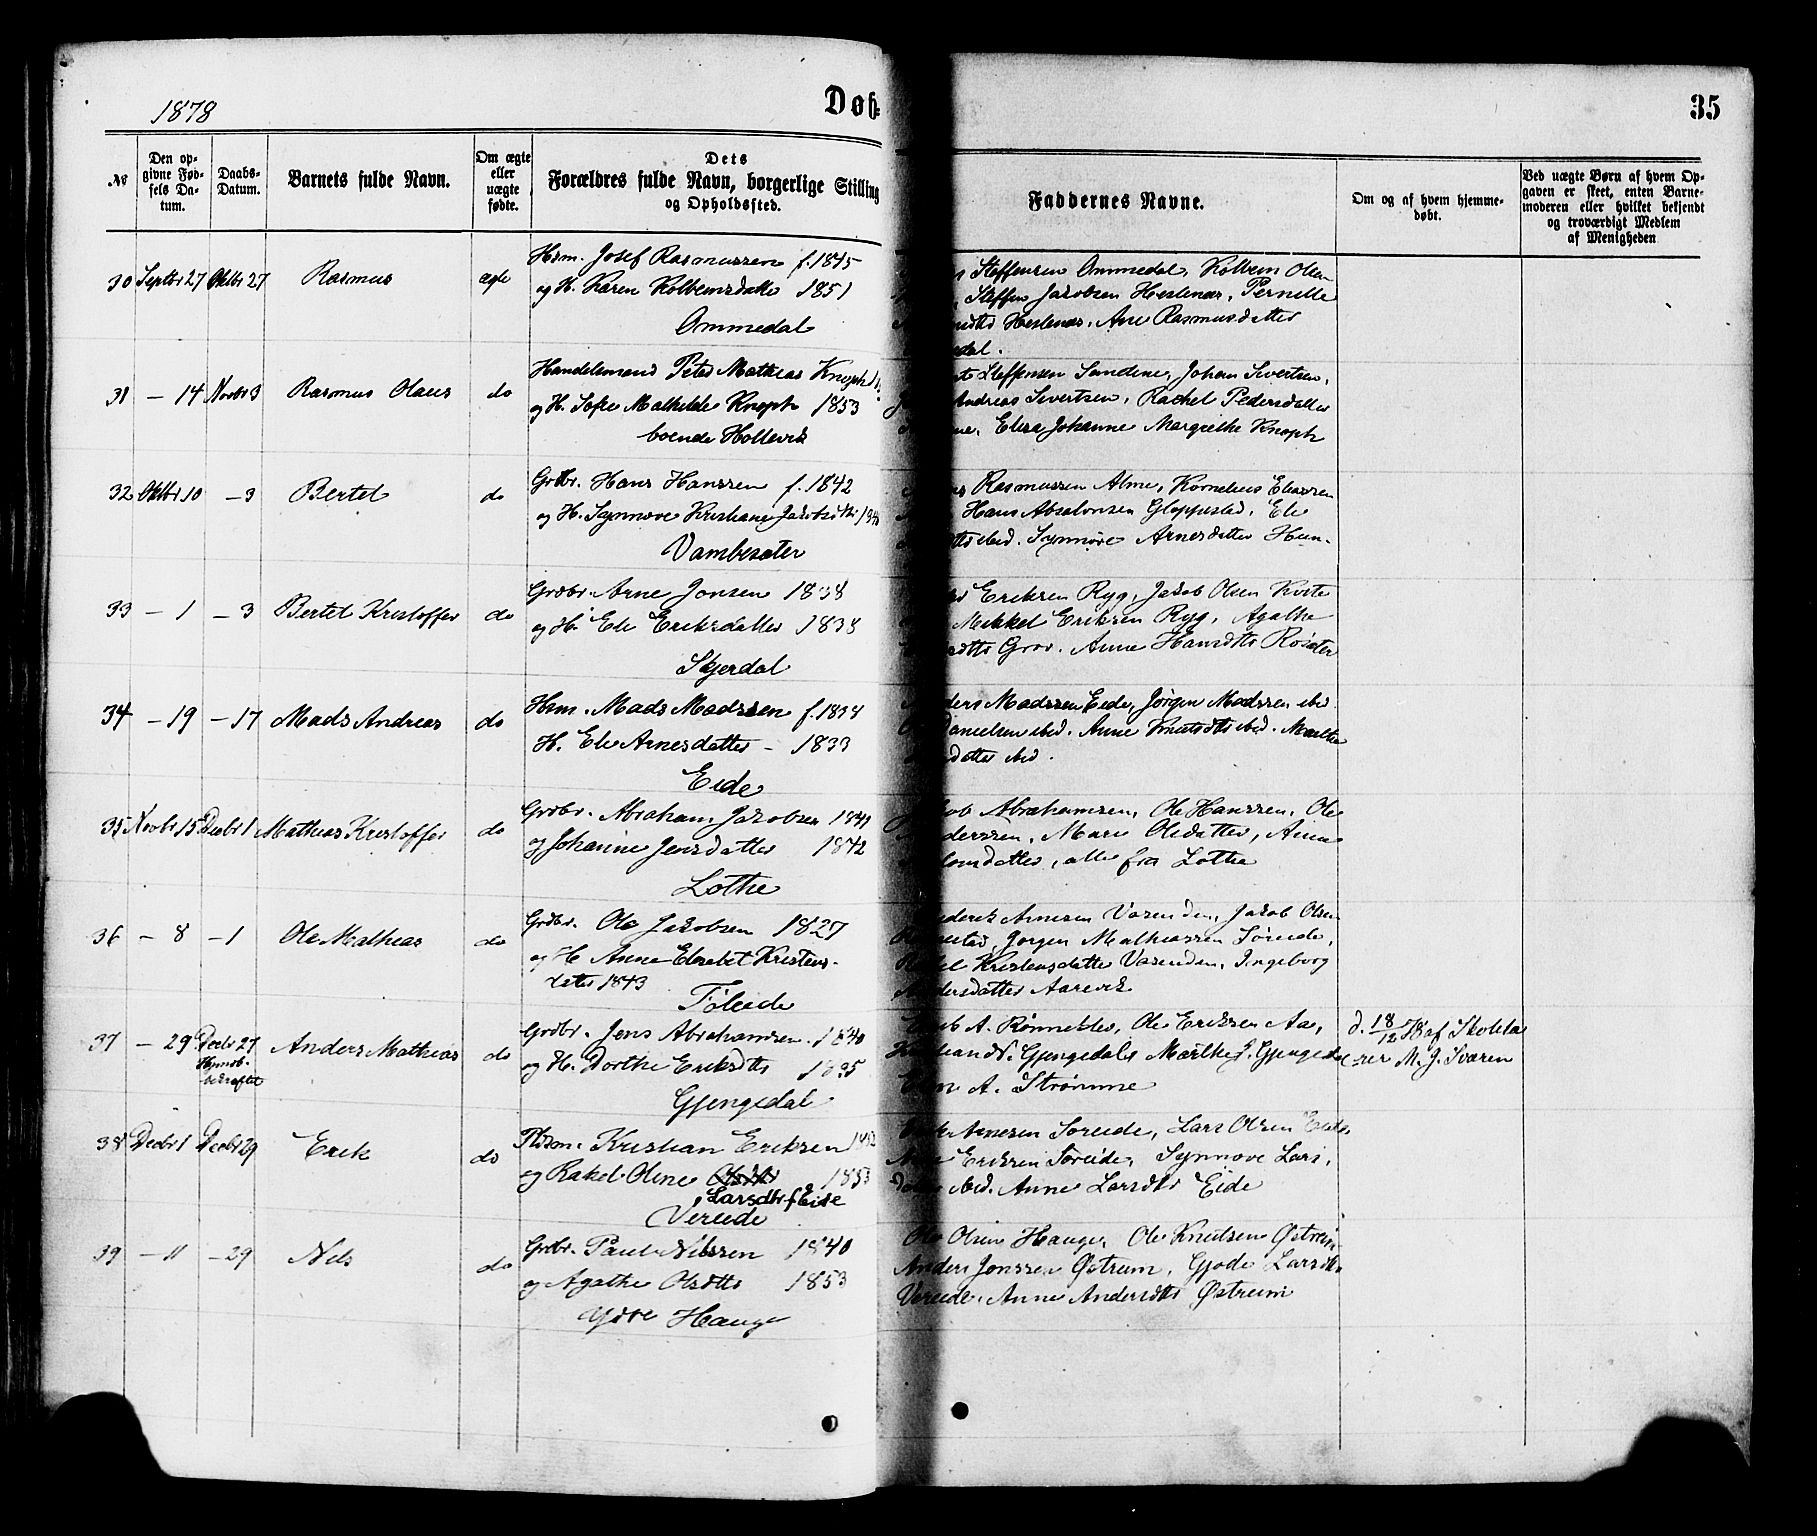 1878
Døb-
35
№
Den op-
givne Fød-
sels Da-
tum.
Daabs-
Datum.
Barnets fulde Navn.
Om ægte
eller
uægte
fødte.
Dets
Forældres fulde Navn, borgerlige Stilling
og Opholdssted.
Faddernes Navne.
Om og af hvem hjemme-
døbt.
Ved uægte Børn af hvem Op-
gaven er skeet, enten Barne-
moderen eller hvilket bekjendt
og troværdigt Medlem
af Menigheden
30 Septbr 27 Oktbr 27 Rasmus ægte
Hsm. Josef Rasmussen f. 1845
og H. Karen Kolbensdatter 1851
Ommedal
Steffensen Ommedal, Kolbein Olsen
Steffen Jakobsen Hestenes, Pernille
Hestenes, Ane Rasmusdatter
dal.
31 – 14 Novbr 3 Rasmus Olaus do
Handelsmand Peter Mathias Knoph
og H. Sofie Mathilde Knoph 1853
boende Hollevik
Steffensen Sandene, Johan Sivertsen,
Andreas Sivertsen, Rachel Pedersdatter
Elisa Johanne Margrethe Knoph
32 Oktbr 10 – 3 Bertel do
Grdbr. Hans Hanssen f. 1842
og H. Synnøve Kristiane Jakobsdtr
Vambeseter
Rasmussen Alme, Kornelius Eliassen
Hans Absalonsen Gloppestad, Eli
ibid. Synnøve Arnesdatter Hun-
33 – 1 – 3 Bertel Kristoffer do
Grdbr. Arne Jonsen 1838
og H. Eli Eriksdatter 1838
Skjerdal
Eriksen Ryg, Jakob Olsen Kvite
Mikkel Eriksen Ryg, Agathe
Grov. Anne Hansdtr Røsæter
34 – 19 – 17 Mads Andreas do
Hsm. Mads Madssen f. 1838
H. Eli Arnesdatter – 1833
Eide
Madssen Eide, Jørgen Madssen ibid.
Danielsen ibid. Anne Knutsdtr ibid. Marthe
datter ibid.
35 Novbr 15 Decbr 1 Mathias Kristoffer do
Grdbr. Abraham Jakobsen
og Johanne Jensdatter 1842
Lothe
Abrahamsen, Ole Hanssen, Ole
Marie Olsdatter, Anna
datter, alle fra Lothe
36 – 8 – 1 Ole Mathias do
Grdbr. Ole Jakobsen 1827
og H. Anne Elisabet Kristens-
datter 1843
Føleide
Arnesen Vasenden, Jakob Olsen
Jørgen Mathiassen Søreide,
Kristensdatter Vasenden, Ingeborg
Andersdatter Aarevik
37 – 29 Decbr 27 Anders Mathias do
Hjmdb.
bekræftet
Grdbr. Jens Abrahamsen 1840
og H. Dorthe Eriksdtr 1835
Gjengedal
A. Rønnekles, Ole Eriksen Aa,
Gjengedal, Marthe J. Gjengedal
A. Strømme
d. 18/12 78 af Skolelæ
rer M. J. Svaren
38 Decbr 1 Decbr 29 Erik do
Kristian Eriksen 1852
og Rakel Oline Olsdtr 1853
Larsdtr f Eide
Vereide
Arnesen Søreide, Lars Olsen Eide
Eriksen Søreide, Synnøve Lars-
datter ibid. Anne Larsdtr Eide
39 – 11 – 29 Nils do
Grdbr. Paul Nilssen 1840
og Agathe Olsdtr 1853
Ydre Hauge
Ole Olsen Hauge, Ole Knutsen Østreim
Anders Jonssen Østreim, Gjøde Larsdtr
Vereide, Anne Andersdtr Østreim